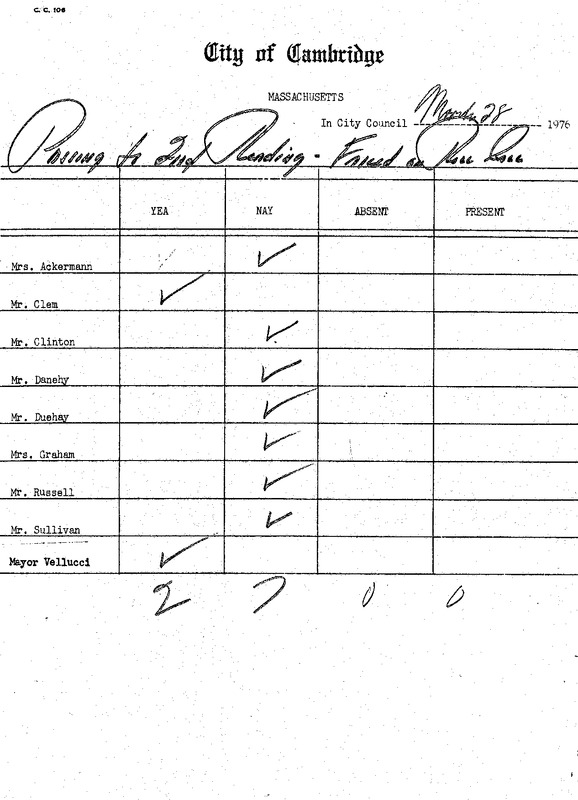 C. C. 106
City of Cambridge
MASSACHUSETTS
In City Council March 28 1976
Passing to 2nd Reading - Failed on
YEA NAY ABSENT PRESENT
Mrs. Ackermann ✓
Mr. Clem ✓
Mr. Clinton ✓
Mr. Danehy ✓
Mr. Duehay ✓
Mrs. Graham ✓
Mr. Russell ✓
Mr. Sullivan ✓
Mayor Vellucci ✓
2 7 0 0